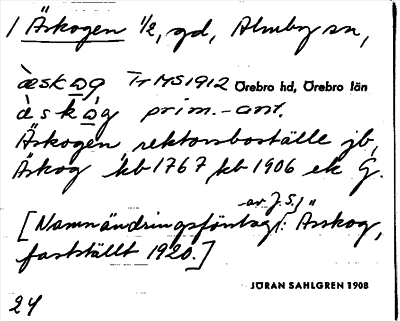 1 Äskogen 1/2, gd, Almby sn,
æ̀skǫg Tr MS 1912 Örebro hd, Örebro län
è s k ǫ̀ g prim.-ant.
Äskogen rektorsboställe jb,
Äskog kb 1767, kb 1906 ek G.
[Namnändringsförslag av J.S.: Ässkog,
fastställt 1920.]
JÖRAN SAHLGREN 1908
24